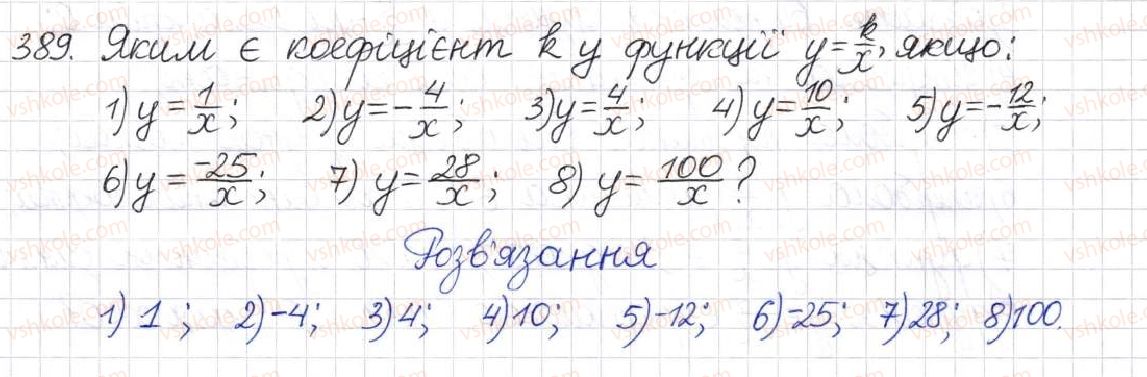 389. Яким є коефіцієнт k у функції y=k/x, якщо:
1) y=1/x; 2) y=-4/x; 3) y=4/x; 4) y=10/x; 5) y=-12/x;
6) y=-25/x; 7) y=28/x; 8) y=100/x?
Розв'язання
1) 1; 2) -4; 3) 4; 4) 10; 5) -12; 6) -25; 7) 28; 8) 100.